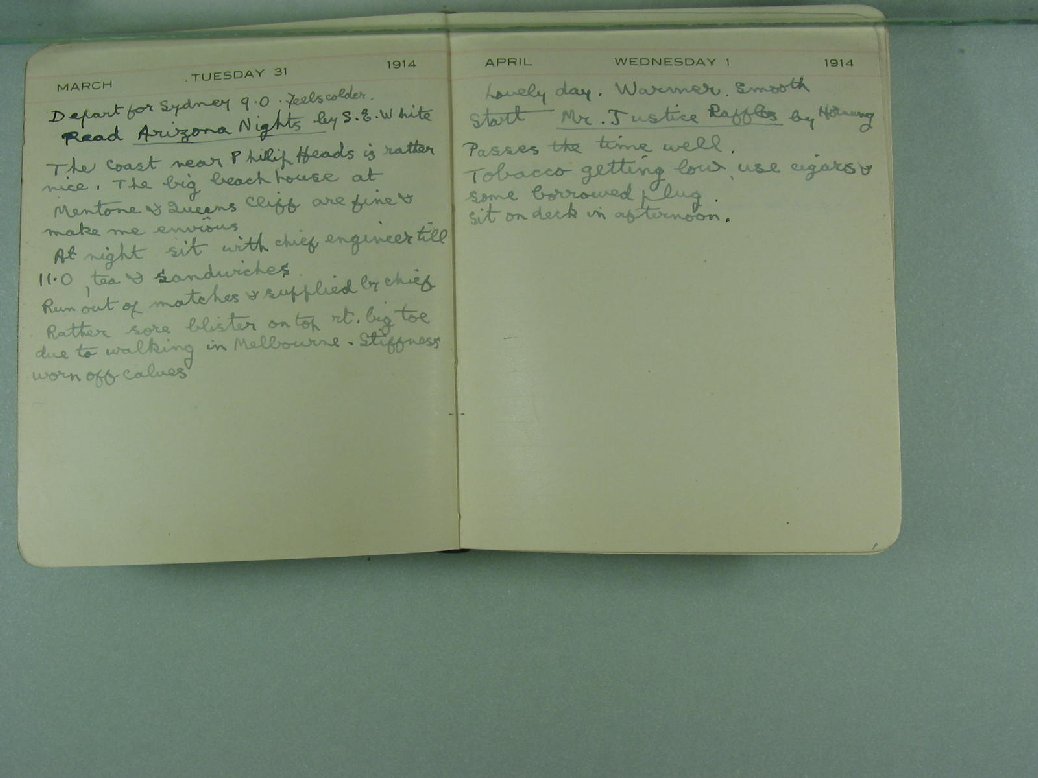 MARCH TUESDAY 31 1914
Depart for Sydney 9.0. Feels colder.
Read Arizona Nights by S.E. White
The coast near Philip Heads is rather
nice. The big beach house at
Mentone & Queens Cliff are fine &
make me envious
At night sit with chief engineer till
11.0, tea & sandwiches
Run out of matches & supplied by chief
Rather sore blister on top rt. big toe
due to walking in Melbourne. Stiffness
worn off calves
APRIL WEDNESDAY 1 1914
Lovely day. Warmer. Smooth
Start Mr. Justice Raffles by Hornung
Passes the time well.
Tobacco getting low, use cigars &
some borrowed plug.
Sit on deck in afternoon.